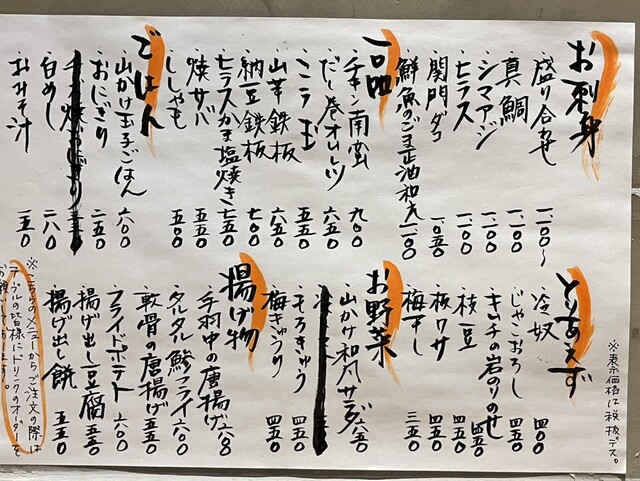 お刺身
・盛り合わせ 一、一〇〇〜
・真鯛 一、一〇〇
・シマアジ 一、一〇〇
・ヒラス 一、一〇〇
・関門ダコ 一、〇五〇
・鮮魚のごま醤油和え 一、一〇〇
一品
・チキン南蛮 九〇〇
・だし巻オムレツ 六五〇
・ニラ玉 五五〇
・山芋鉄板 六五〇
・納豆鉄板 七〇〇
・ヒラスかま塩焼き 七五〇
・焼サバ 五五〇
・ししゃも 五五〇
ごはん
・山かけ玉子ごはん 六〇〇
・おにぎり 二五〇
・白めし 二八〇
・おみそ汁 二五〇
※表示価格は税抜デス。
とりあえず
・冷奴 四〇〇
・じゃこおろし 四五〇
・キムチの岩のりのせ 四五〇
・枝豆 四五〇
・板ワサ 四五〇
・梅干し 三五〇
お野菜
・山かけ和風サラダ 六五〇
・もろきゅう 四五〇
・梅きゅうり 四五〇
揚げ物
・手羽中の唐揚げ 六〇〇
・タルタル鯵フライ 六〇〇
・軟骨の唐揚げ 五五〇
・フライドポテト 六〇〇
・揚げ出し豆腐 五五〇
・揚げ出し餅 五五〇
※こちらのメニューからご注文の際は
テーブルの皆様にドリンクのオーダーを
お願いしております。